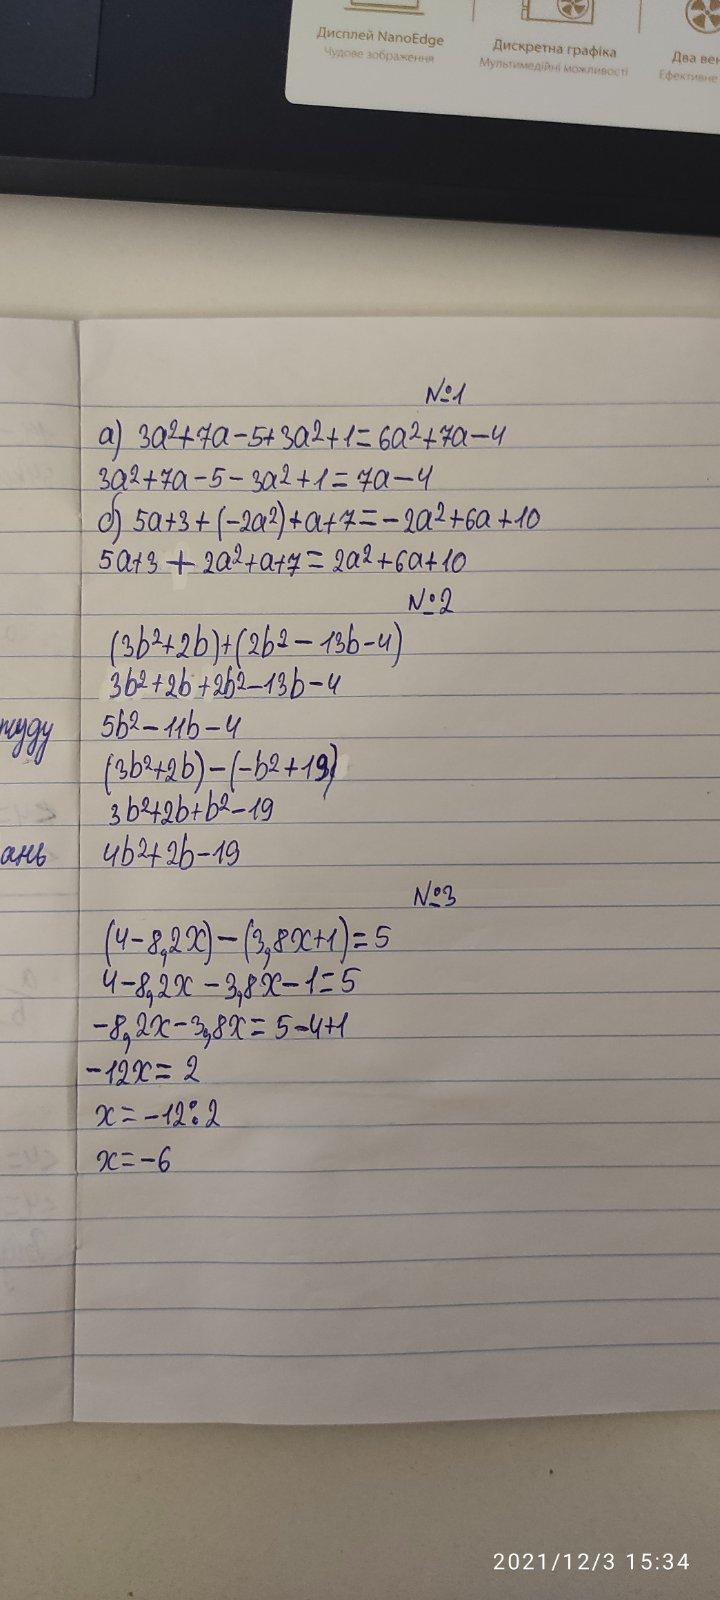 Дисплей NanoEdge
Чудове зображення
Дискретна графіка
Мультимедійні можливості
Два
Ефективне
№1
а) 3a²+7a-5+3a²+1=6a²+7a-4
3a²+7a-5-3a²+1=7a-4
б) 5a+3+(-2a²)+a+7=-2a²+6a+10
5a+3+2a²+a+7=2a²+6a+10
№2
(3b²+2b)+(2b²-13b-4)
3b²+2b+2b²-13b-4
5b²-11b-4
(3b²+2b)-(-b²+19)
3b²+2b+b²-19
4b²+2b-19
№3
(4-8,2x)-(3,8x+1)=5
4-8,2x-3,8x-1=5
-8,2x-3,8x=5-4+1
-12x=2
x=-12:2
x=-6
2021/12/3 15:34